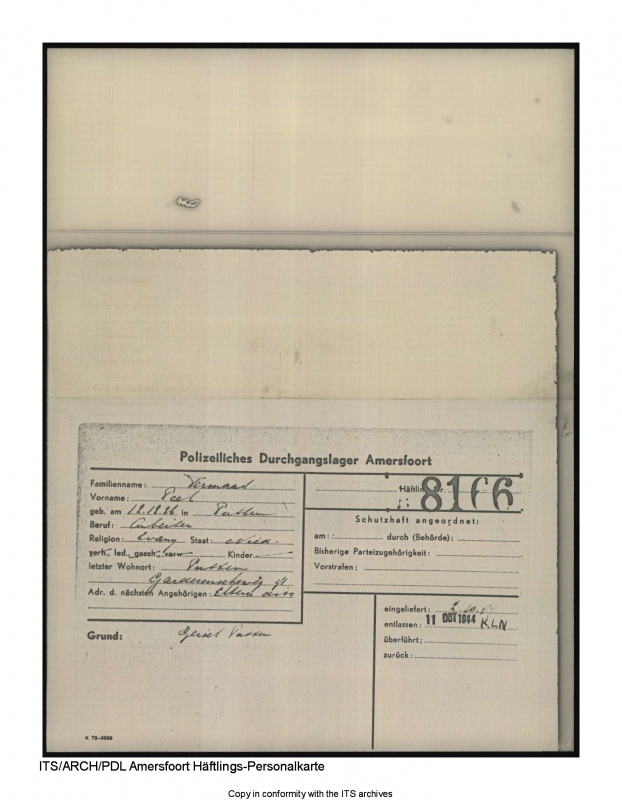 Polizeiliches Durchgangslager Amersfoort
Familienname: Vermaat
Vorname: Peet
geb. am 12.12.26 in Putten
Beruf: Arbeiter
Religion: Evang Staat: Nied.
verh., led., gesch., verw. Kinder
letzter Wohnort: Putten
Adr. d. nächsten Angehörigen: Eltern dito
Grund: Geisel Putten
Häftling Nr. 8166
Schutzhaft angeordnet:
am: durch (Behörde):
Bisherige Parteizugehörigkeit:
Vorstrafen:
eingeliefert:
entlassen: 11 OCT 1944 KLN
überführt:
zurück:
ITS/ARCH/PDL Amersfoort Häftlings-Personalkarte
Copy in conformity with the ITS archives